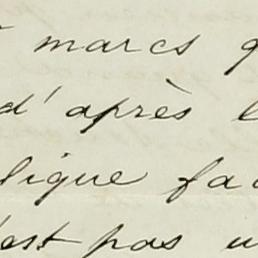 marcs q
d'après l
lique fac
'est pas u